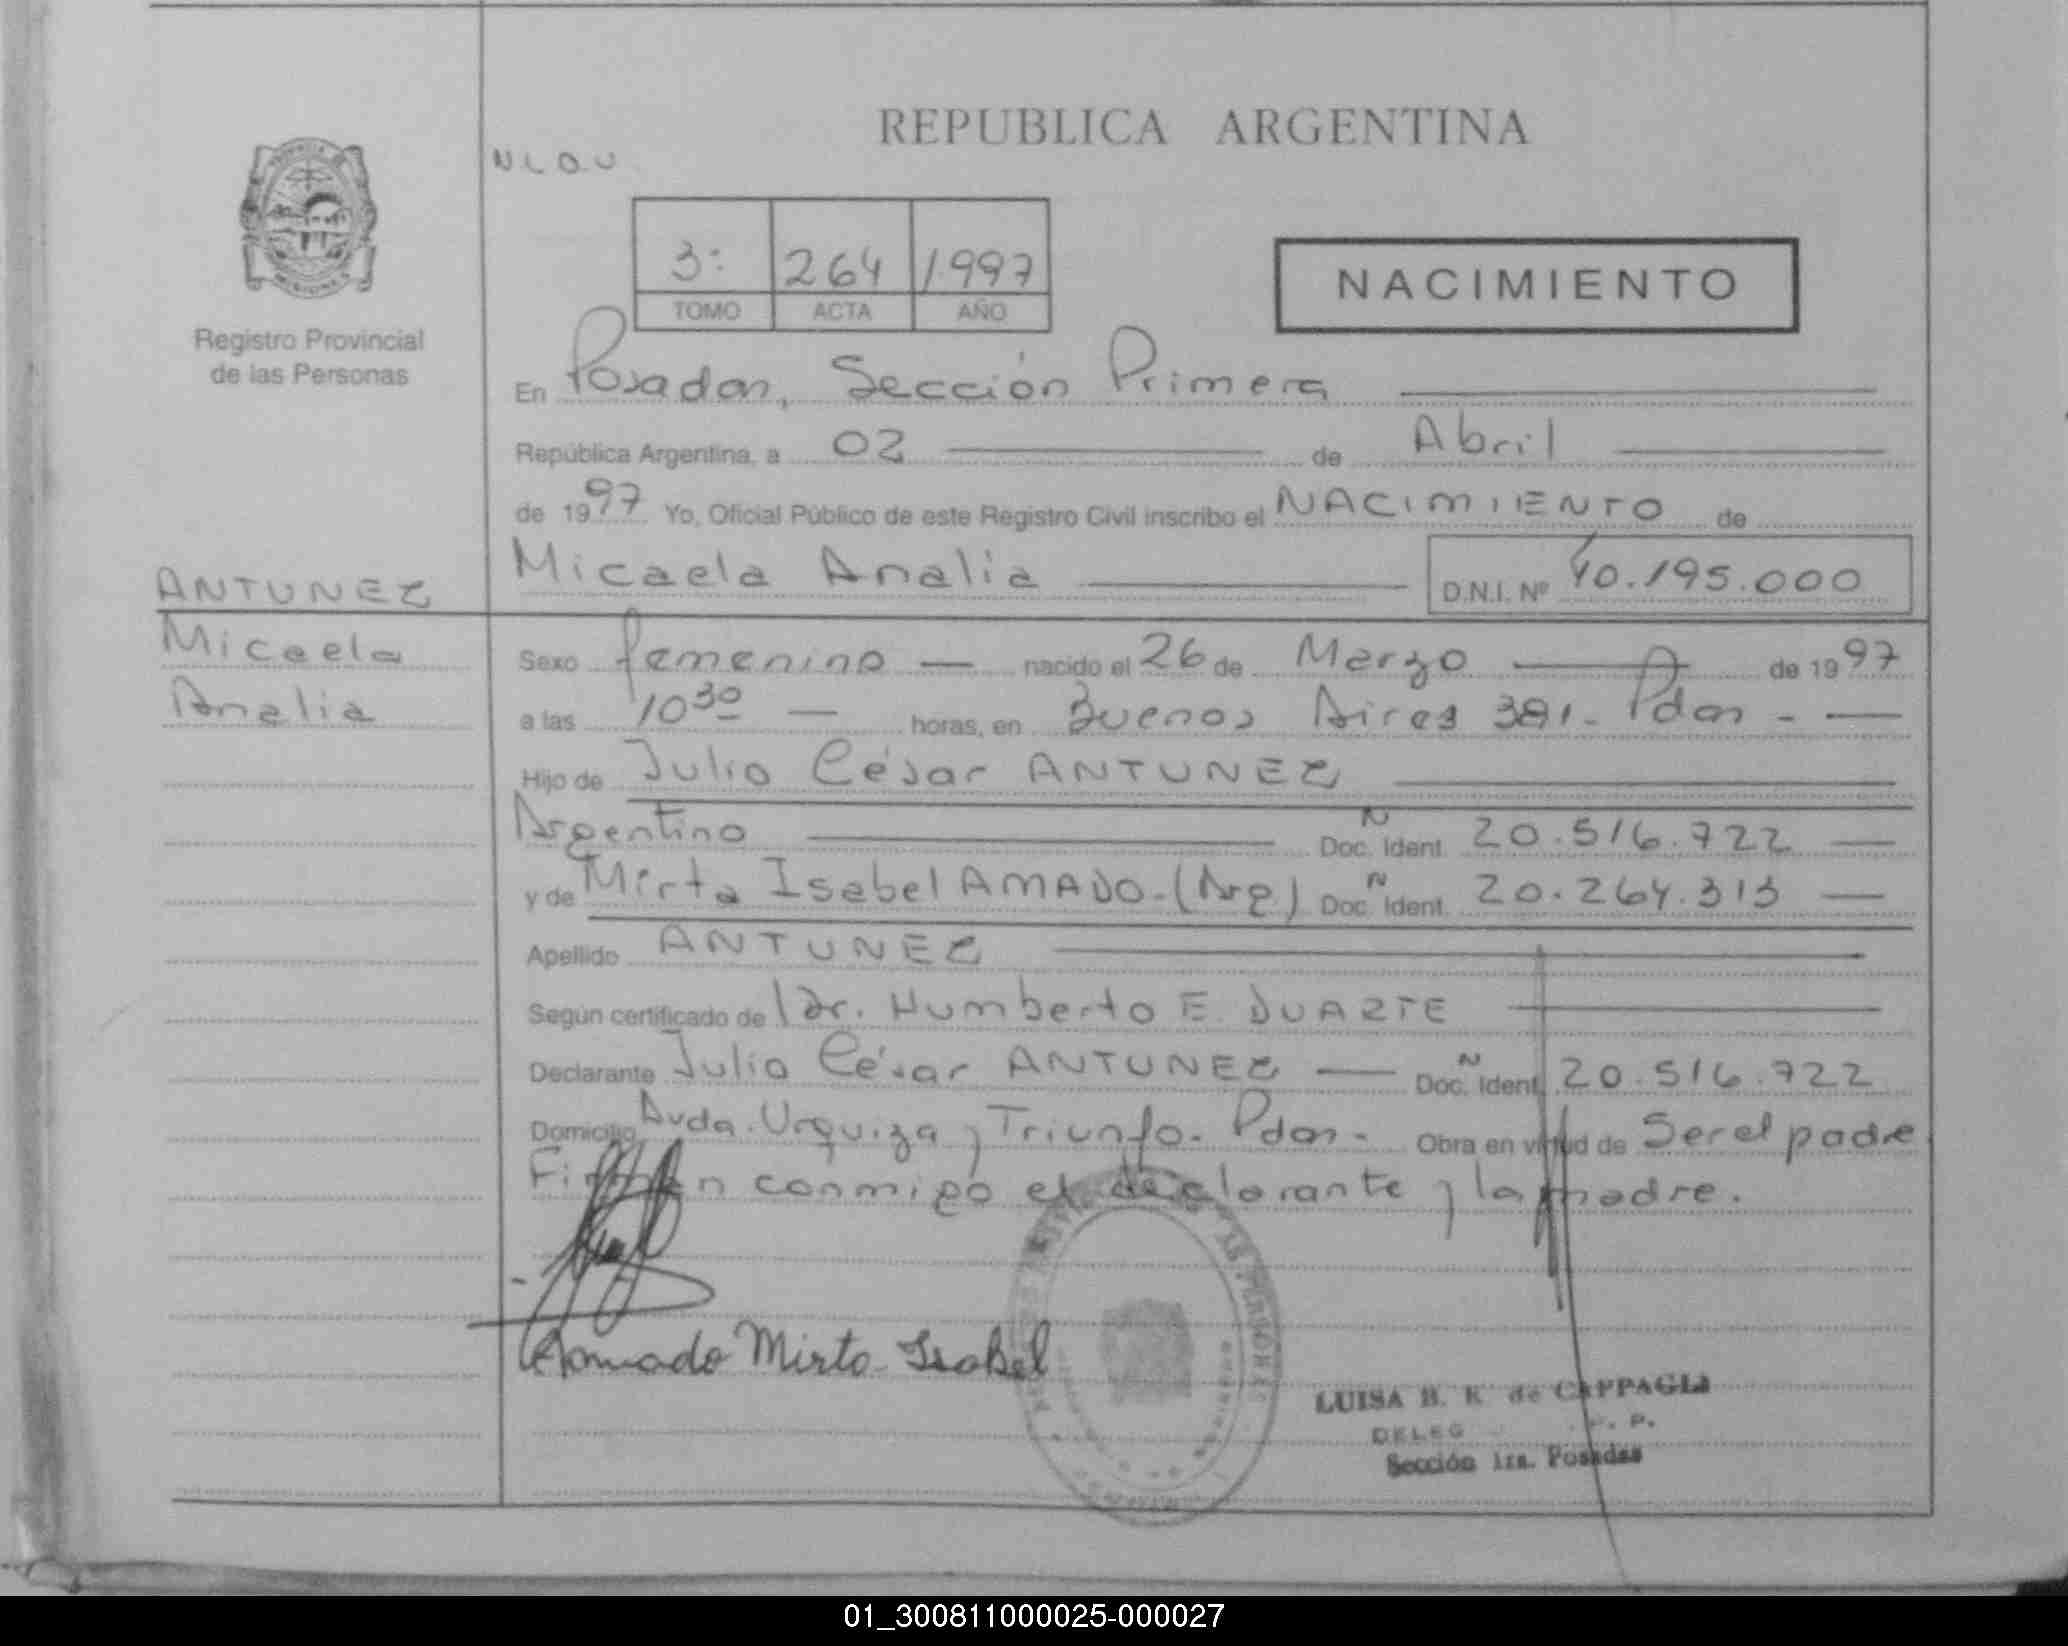 REPUBLICA ARGENTINA
N L O U
3: 264 1997
TOMO ACTA AÑO
NACIMIENTO
Registro Provincial
de las Personas
En Posadas, Sección Primera
República Argentina, a 02 de Abril
de 1997 Yo, Oficial Público de este Registro Civil inscribo el NACIMIENTO de
Micaela Analia D.N.I. Nº 40.195.000
ANTUNEZ
Micaela
Analia
Sexo femenino nacido el 26 de Marzo de 1997
a las 10 30 horas, en Buenos Aires 381. Pdas -
Hijo de Julio César ANTUNEZ
Argentino Doc. Ident. N 20.516.722
y de Mirta Isabel AMADO. (Arg) Doc. Ident. N 20.264.313
Apellido ANTUNEZ
Según certificado de Dr. Humberto E. DUARTE
Declarante Julio César ANTUNEZ Doc. Ident. N 20.516.722
Domicilio Avda. Urquiza y Triunfo. Pdas - Obra en virtud de Ser el padre
Firman conmigo el declarante y la madre.
Amado Mirta Isabel
LUISA B. K de CAPPAGLI
DELEG P.
Sección 1ra. Posadas
01_300811000025-000027